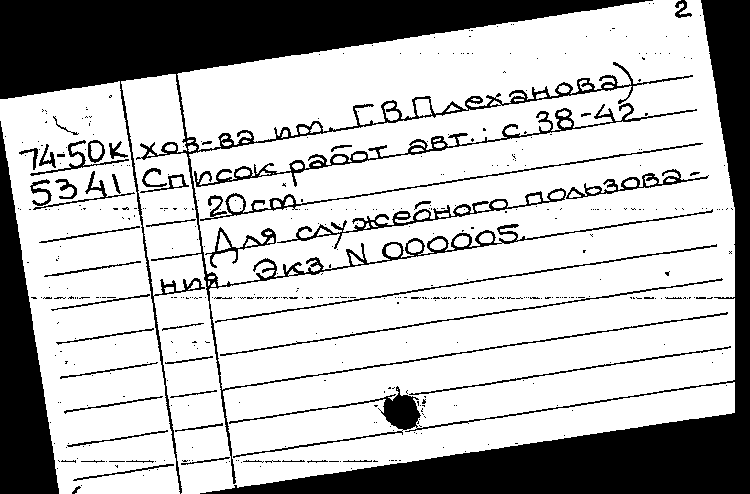 2
74-50к хоз-ва им. Г.В.Плеханова).
5341 Список работ авт.: с. 38-42.
20 см.
Для служебного пользова-
ния. Экз. N 000005.